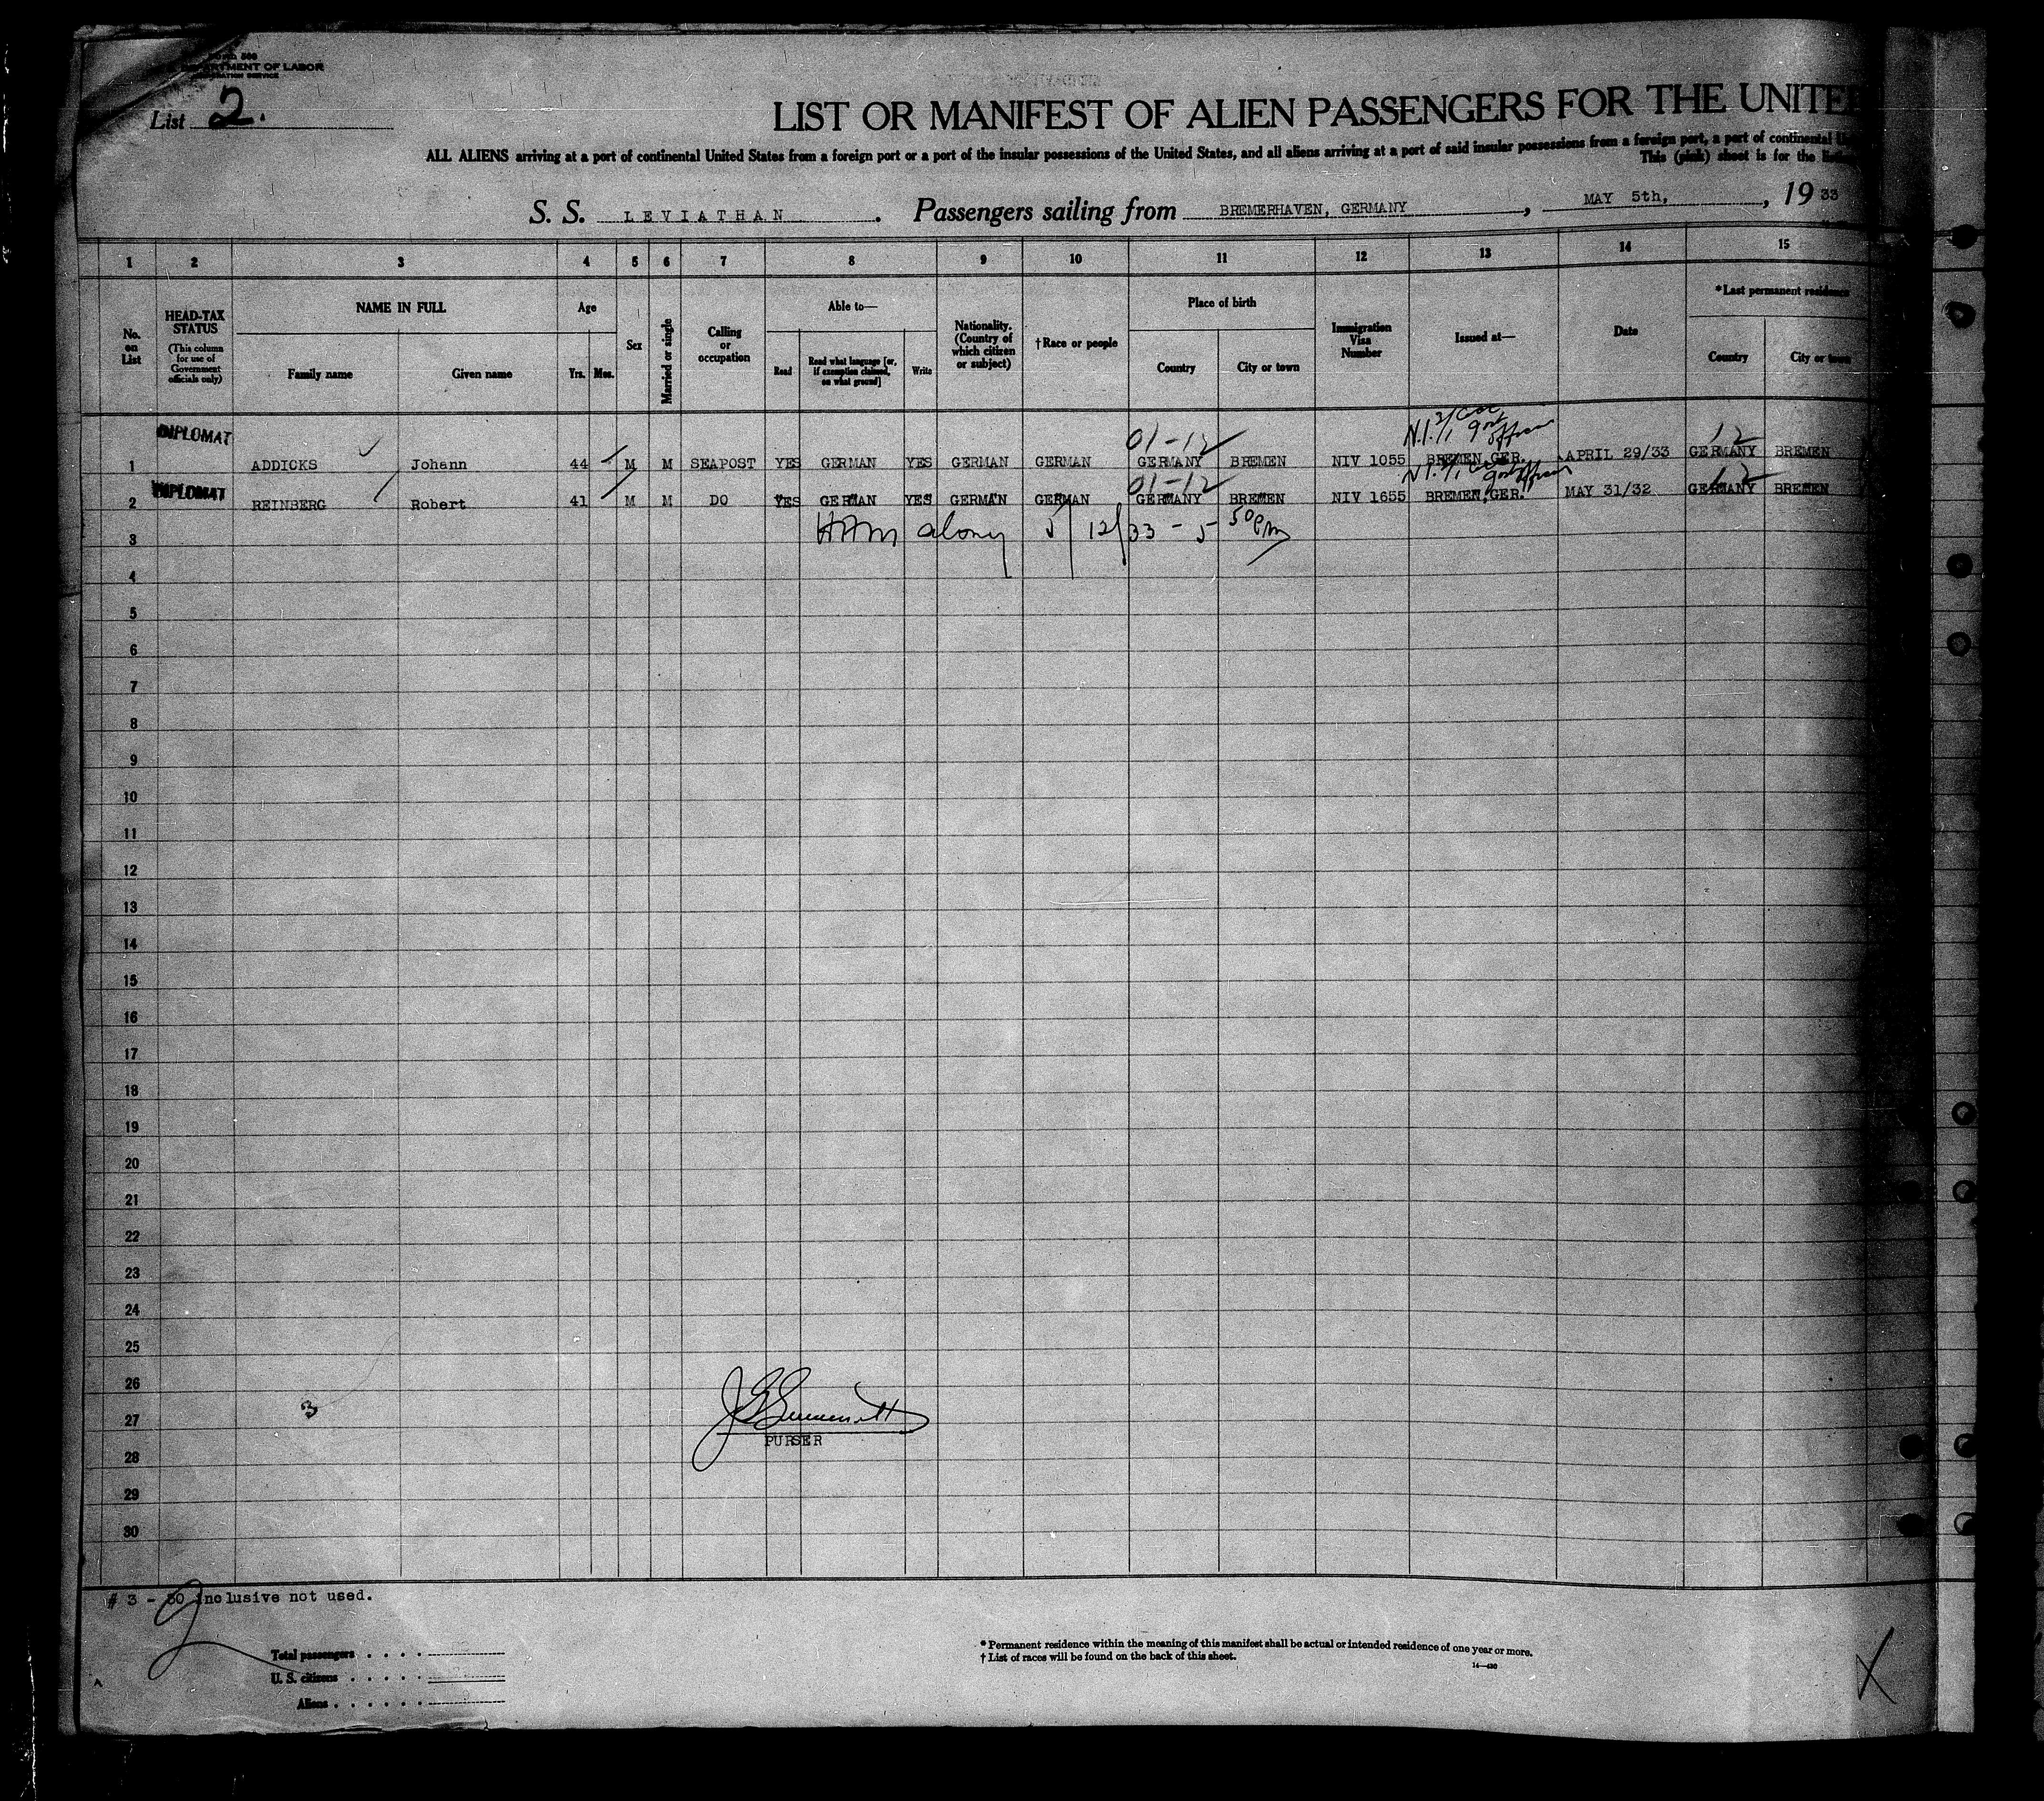 DEPARTMENT OF LABOR
List 2.
LIST OR MANIFEST OF ALIEN PASSENGERS FOR THE UNITE
ALL ALIENS arriving at a port of continental United States from a foreign port or a port of the insular possessions of the United States, and all aliens arriving at a port of said insular possessions from a foreign port, a part of continental
This (pink) sheet is for the
S. S. LEVIATHAN . Passengers sailing from BREMERHAVEN, GERMANY , MAY 5th, , 19 33
1 2 3 4 5 6 7 8 9 10 11 12 13 14 15
No. on List
HEAD-TAX STATUS
(This column for use of Government officials only)
NAME IN FULL
Family name
Given name
Age
Yrs. Mos.
Sex
Married or single
Calling or occupation
Able to—
Read
Read what language [or, if exemption claimed, on what ground]
Write
Nationality. (Country of which citizen or subject)
†Race or people
Place of birth
Country
City or town
Immigration Visa Number
Issued at—
Date
*Last permanent residence
Country
City or town
DIPLOMAT
01-12
12
1 ADDICKS Johann 44 M M SEAPOST YES GERMAN YES GERMAN GERMAN GERMANY BREMEN NIV 1055 BREMEN, GER. APRIL 29/33 GERMANY BREMEN
DIPLOMAT
01-12
12
2 REINBERG Robert 41 M M DO YES GERMAN YES GERMAN GERMAN GERMANY BREMEN NIV 1655 BREMEN, GER. MAY 31/32 GERMANY BREMEN
3 5/12/33 - 5 50 pm
4
5
6
7
8
9
10
11
12
13
14
15
16
17
18
19
20
21
22
23
24
25
26
27
PURSER
28
29
30
# 3 - 30 inclusive not used.
Total passengers
U. S. citizens
Aliens
* Permanent residence within the meaning of this manifest shall be actual or intended residence of one year or more.
† List of races will be found on the back of this sheet.